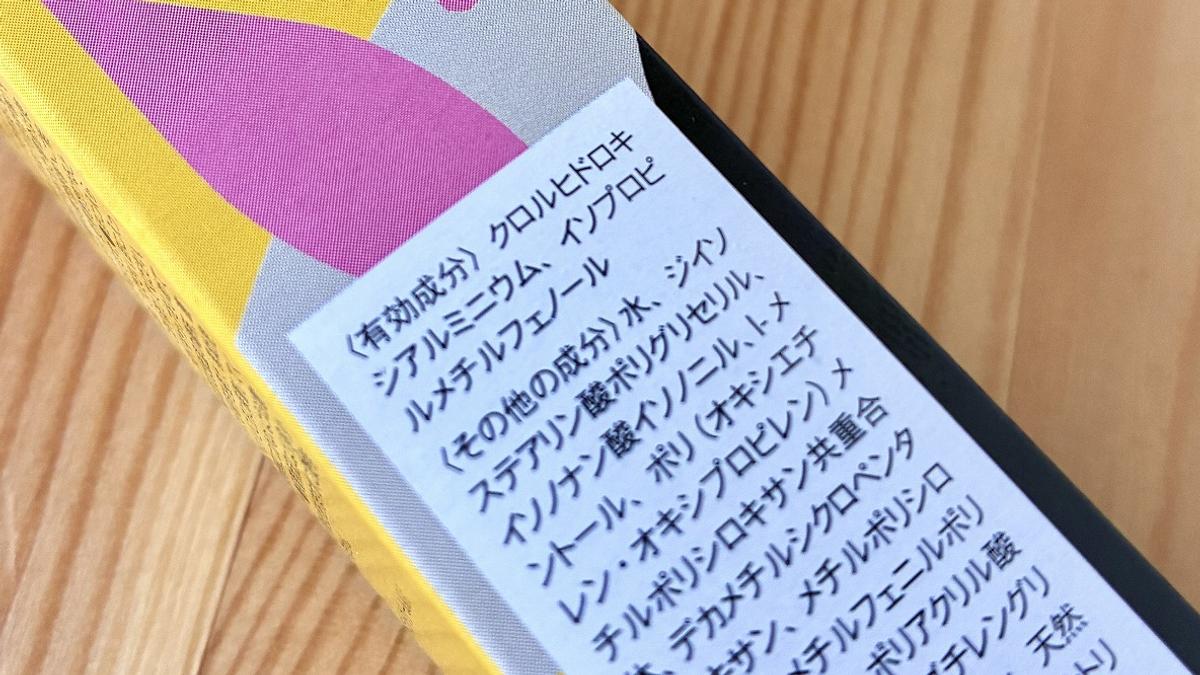 〈有効成分〉クロルヒドロキ
シアルミニウム、イソプロピ
ルメチルフェノール
〈その他の成分〉水、ジイソ
ステアリン酸ポリグリセリル、
イソノナン酸イソノニル、トメ
ントール、ポリ（オキシエチ
レン・オキシプロピレン）メ
チルポリシロキサン共重合
、デカメチルシクロペンタ
キサン、メチルポリシロ
メチルフェニルポリ
ポリアクリル酸
チレングリ
、天然
トリ